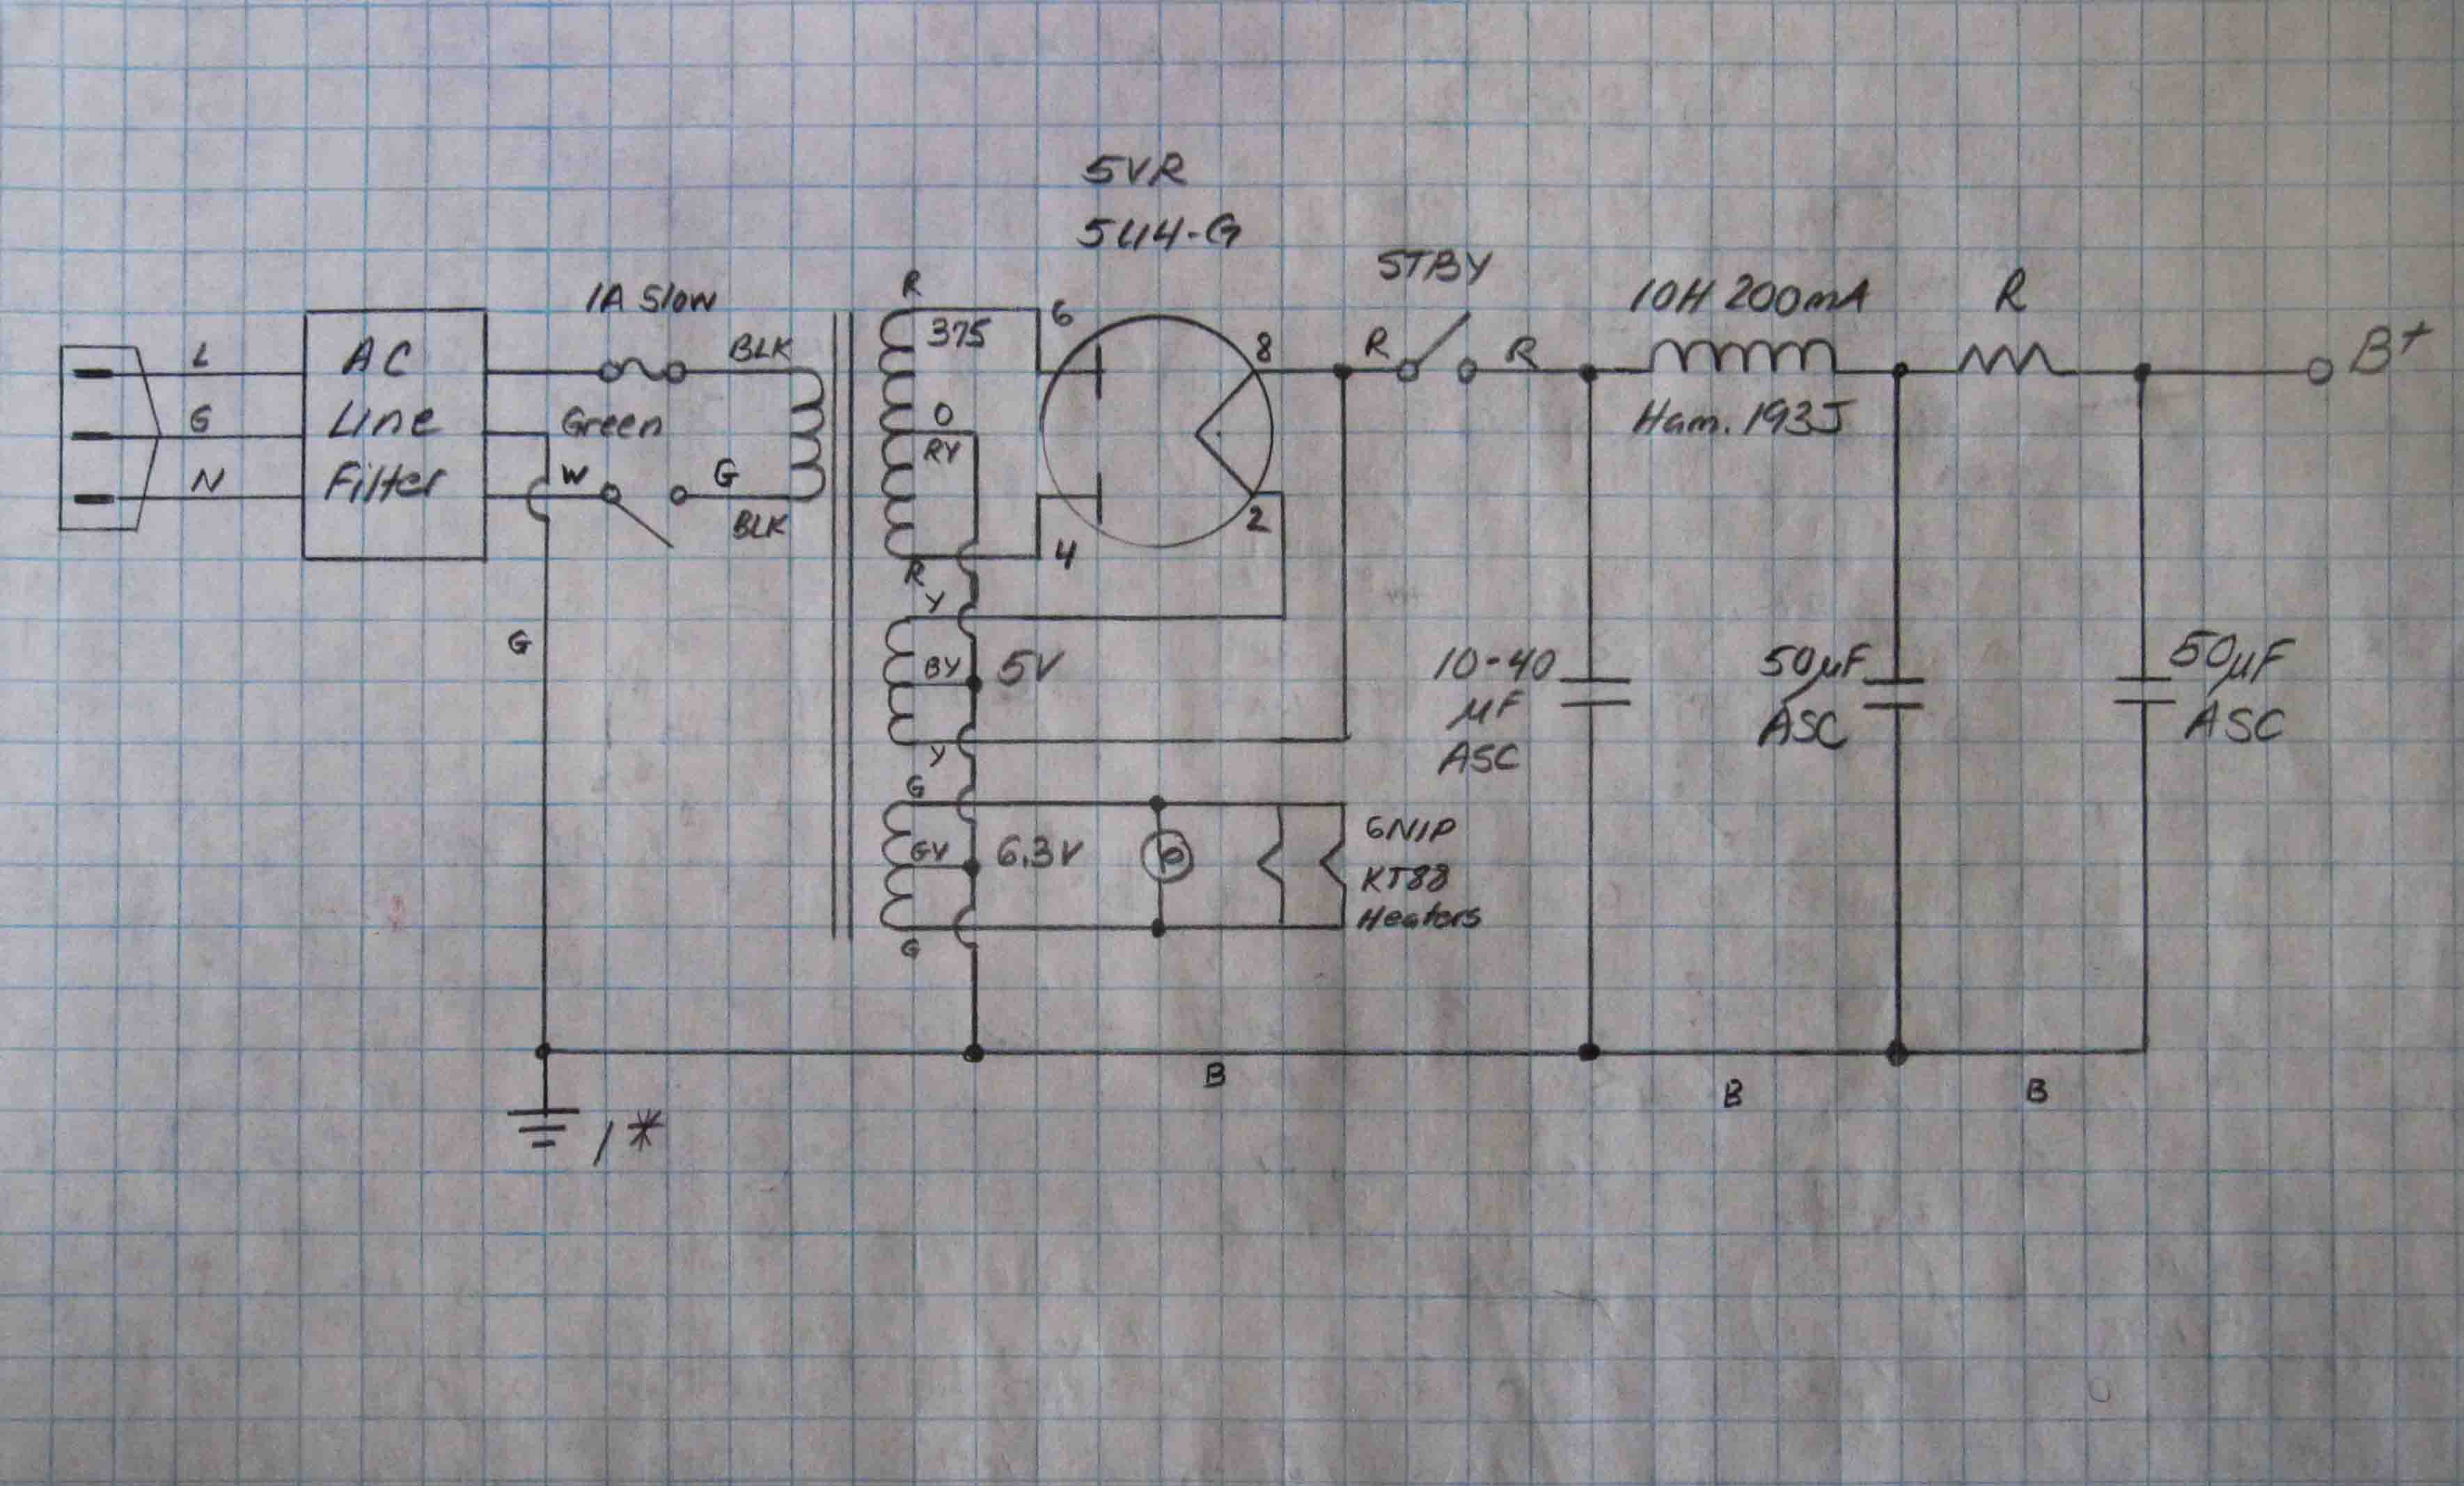 5VR
5U4-G
STBY
1A Slow
R
375
6
8
R
R
10H 200mA
R
B+
L
AC
BLK
G
Line
Green
O
RY
Ham. 193J
N
Filter
W
G
BLK
2
4
R
Y
G
BY
5V
10-40
µF
ASC
50µF
ASC
50µF
ASC
Y
G
GY
6.3V
6N1P
KT88
Heaters
G
B
B
B
/*